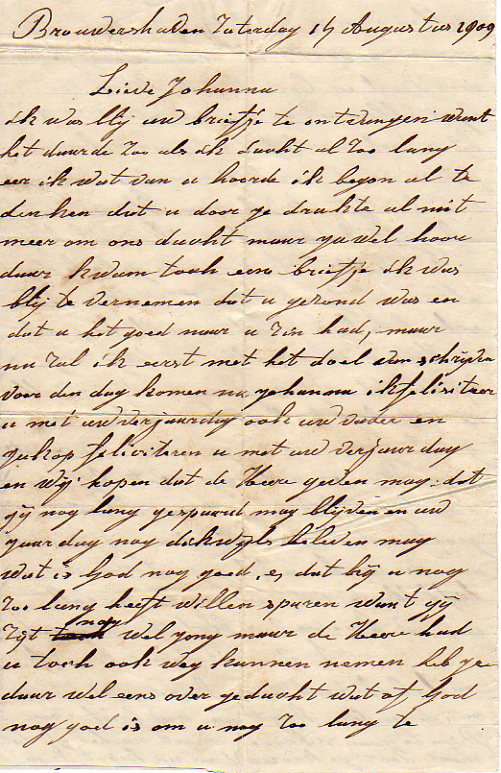 Brouwershaven Zaterdag 14 Augustus 1909
Lieve Johanna
ik was blij uw briefje te ontvangen want
het duurde zoo als ik dacht al zoo lang
eer ik wat van u hoorde ik begon al te
denken dat u door ge drukte al niet
meer om ons dacht maar ja wel hoor
daar kwam toch eens briefje ik was
blij te vernemen dat u gezond was en
dat u het goed naar u zin had, maar
nu zal ik eerst met het doel van schrijve
voor den dag komen nu Johanna ik felisiteer
u met uw verjaardag ook uw vader en
Jakop feliciteren u met uw verjaardag
en wij hopen dat de Heere geeven mag dat
gij nog lang gespaard mag blijven en uw
jaardag nog dikwijls beleven mag
wat is God nog goed, es dat hij u nog
zoo lang heeft willen sparen want gij
zijt nog wel jong maar de Heere had
u toch ook weg kunnen nemen heb ge
daar wel eens over gedacht wat of God
nog goed is om u nog zoo lang te